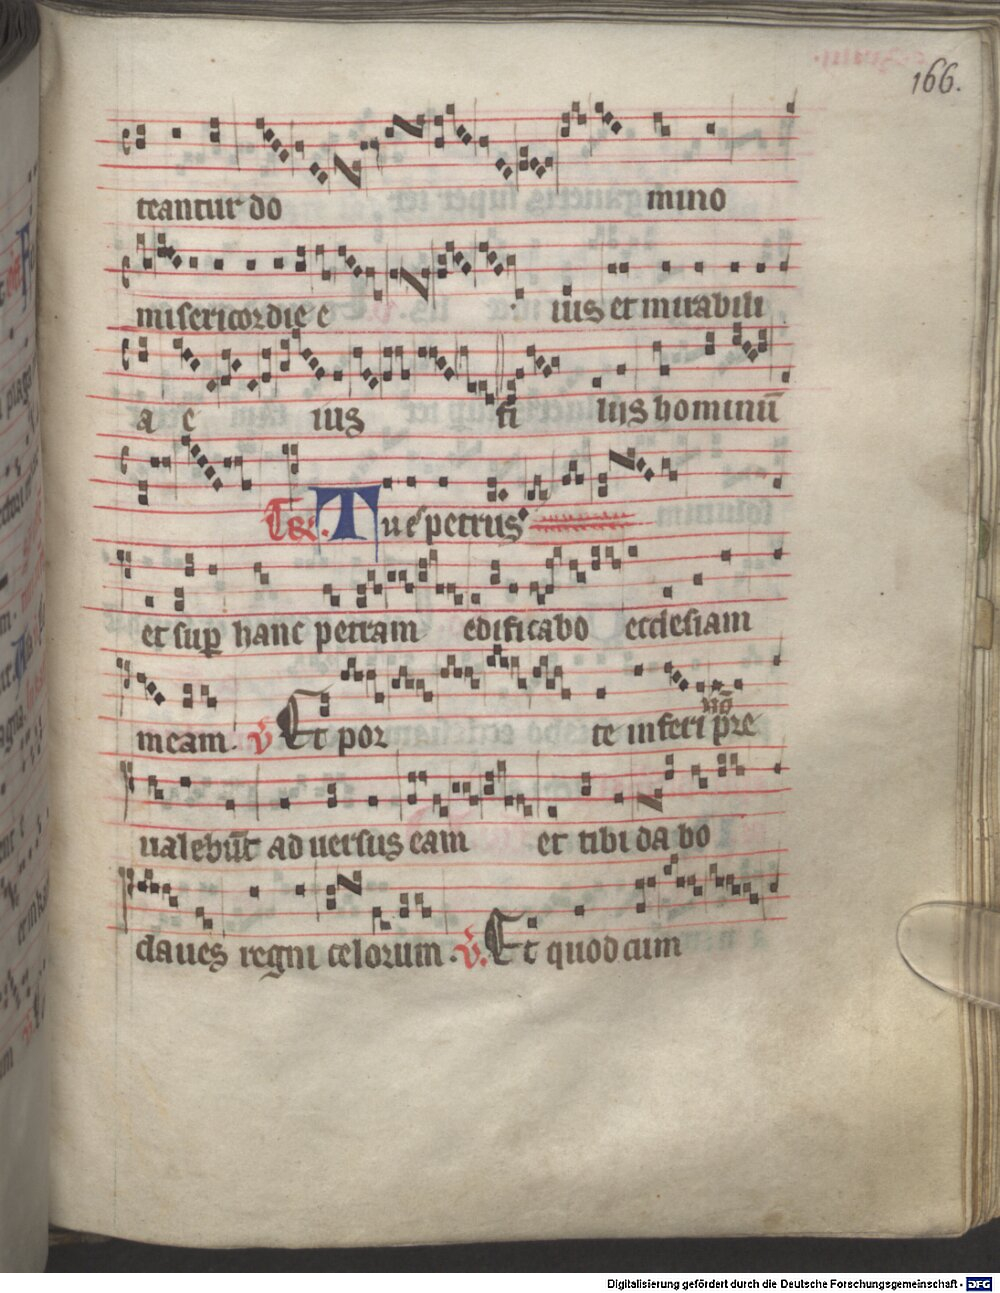 166.
teantur do mino
misericordie e ius et mirabili
a e ius fi liis hominū
Tr. Tu es petrus
et sup hanc petram edificabo ecclesiam
meam. v̄ Et por te inferi pre
nō
ualebūt ad uersus eam et tibi da bo
claues regni celorum. v̄. Et quod cum
Digitalisierung gefördert durch die Deutsche Forschungsgemeinschaft - DFG